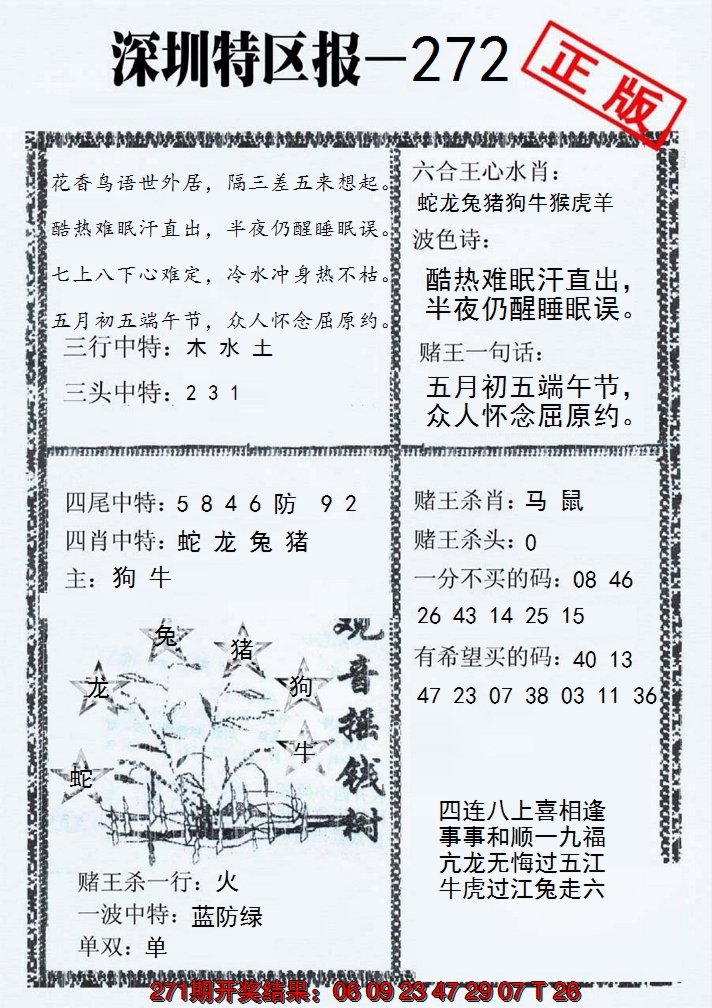 深圳特区报—272
正版
花香鸟语世外居，隔三差五来想起。
酷热难眠汗直出，半夜仍醒睡眠误。
七上八下心难定，冷水冲身热不枯。
五月初五端午节，众人怀念屈原约。
三行中特：木 水 土
三头中特：2 3 1
六合王心水肖：
蛇龙兔猪狗牛猴虎羊
波色诗：
酷热难眠汗直出，
半夜仍醒睡眠误。
赌王一句话：
五月初五端午节，
众人怀念屈原约。
四尾中特：5 8 4 6 防 9 2
四肖中特：蛇 龙 兔 猪
主：狗 牛
兔
猪
龙
狗
牛
蛇
观音摇钱树
赌王杀一行：火
一波中特：蓝防绿
单双：单
赌王杀肖：马 鼠
赌王杀头：0
一分不买的码：08 46
26 43 14 25 15
有希望买的码：40 13
47 23 07 38 03 11 36
四连八上喜相逢
事事和顺一九福
亢龙无悔过五江
牛虎过江兔走六
271期开奖结果：06 09 23 47 29 07 T 26